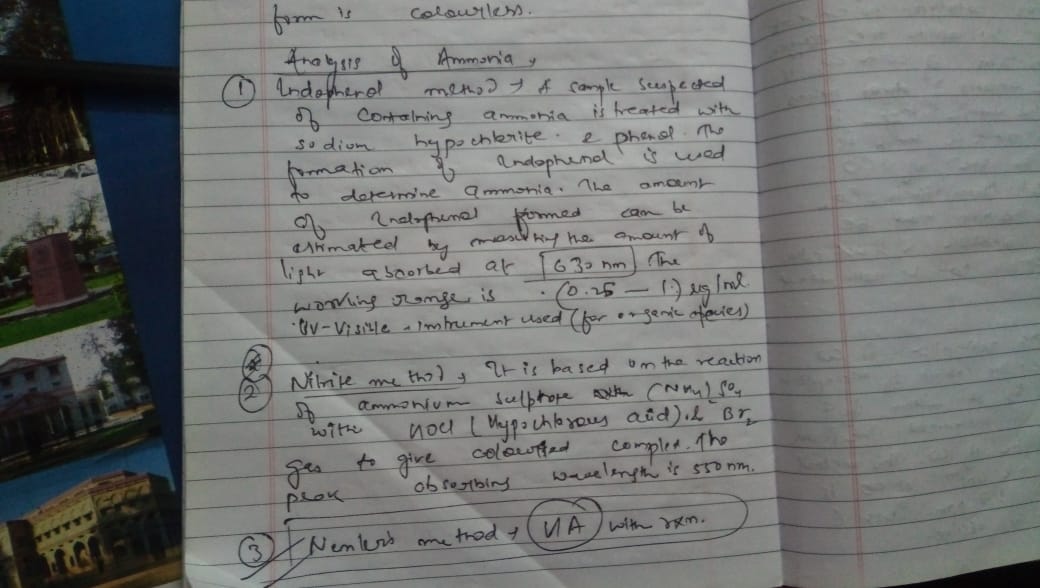 form is colourless.
Analysis of Ammonia,
① Indophenol method → A sample suspected
of containing ammonia is treated with
sodium hypochlorite. & phenol. The
formation of Indophenol is used
to determine ammonia. The amount
of Indophenol formed can be
estimated by measuring the amount of
light absorbed at [630 nm] The
working range is (0.25 — 1.) ug/ml.
UV-Visible instrument used (for organic species)
② Nitrite method, It is based on the reaction
of ammonium sulphate (NH4)2SO4
with HOCl (Hypochlorous acid). & Br2
gas to give coloured complex. The
peak absorbing wavelength is 550 nm.
③ method → with rxn.